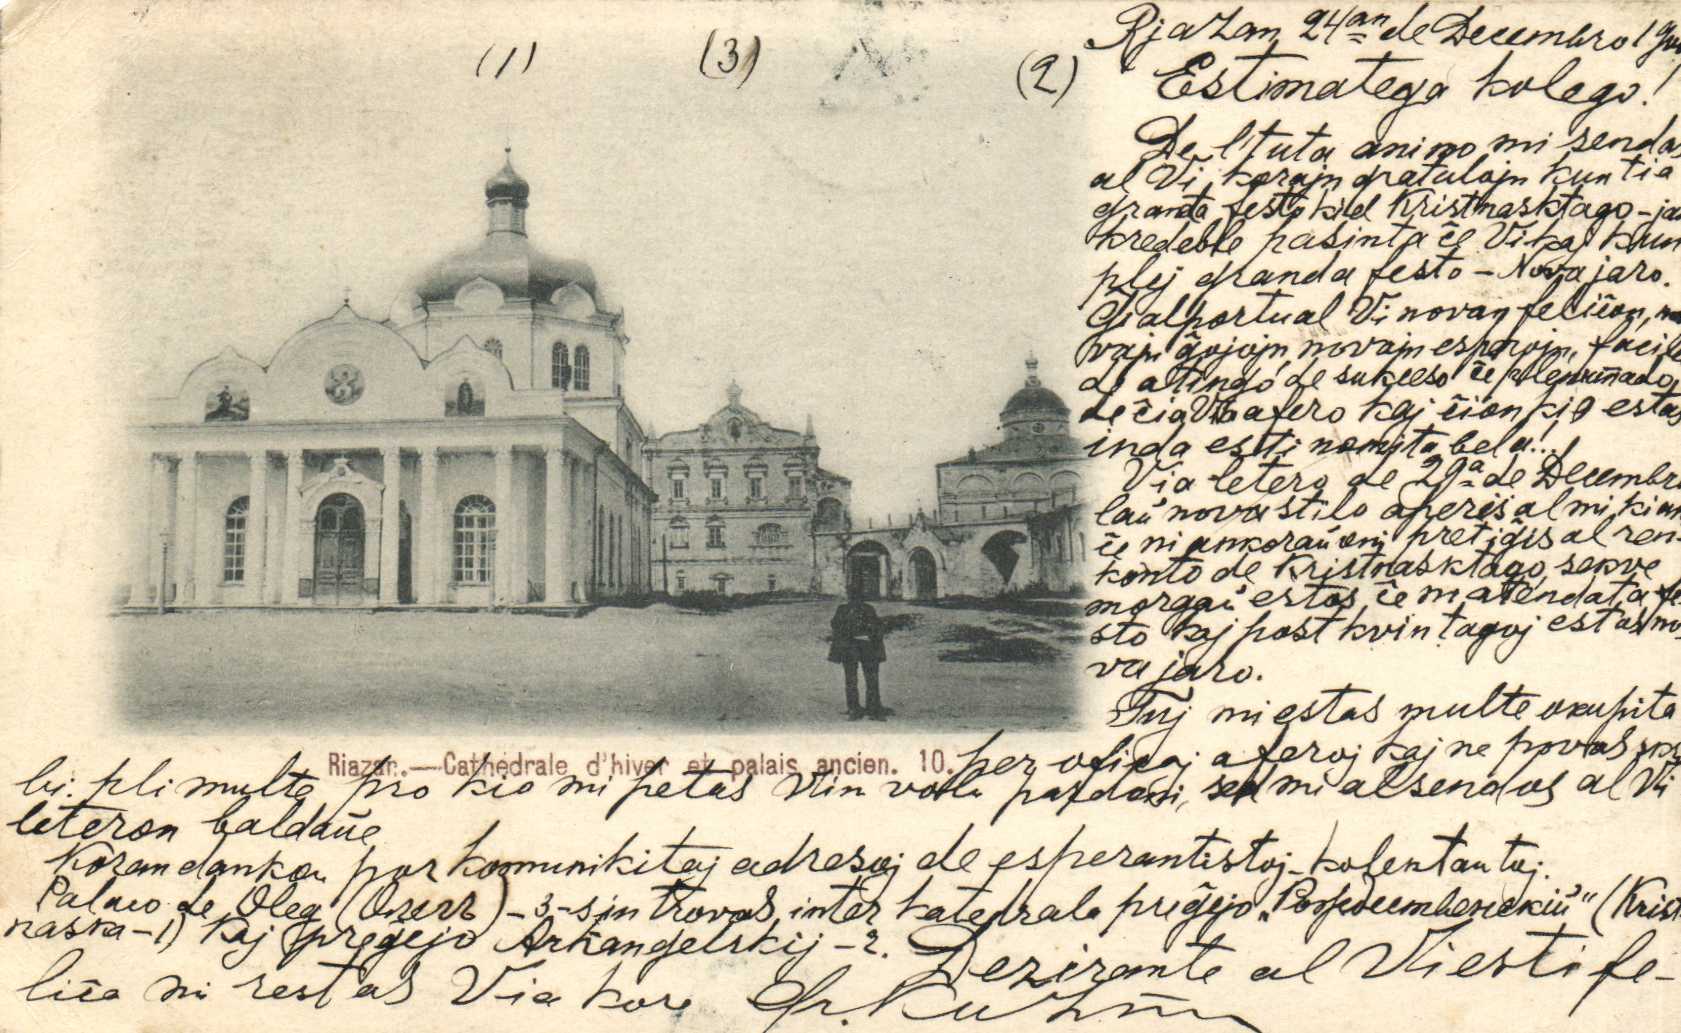 (1) (3) (2)
Rjazan, 24an de Decembro
Estimatega kolego!
De l'tuta animo mi sendas
al Vi korajn gratulojn kun tia
granda festo kiel Kristnasktago - jam
kredeble pasinta ĉe Vi kaj kun
plej granda festo - Nova jaro.
Ĝi alportu al Vi novan feliĉon, no
vajn ĝojojn, novajn esperojn, facile
de atingo de sukceso ĉe plenumado
de ĉia Via afero kaj ĉion kio estas
inda esti nomita bela!..
Via letero de 29a de Decembro
laŭ nova stilo aperis al mi kiam
ĉe ni ankoraŭ oni pretiĝis al ren-
konto de Kristnasktago, sekve
morgaŭ estos ĉe ni atendata fe-
sto kaj post kvin tagoj estas no-
va jaro.
Tuj mi estas multe okupita
per oficaj aferoj kaj ne povas skri
Riazan.—Cathédrale d'hiver et palais ancien. 10.
bi pli multe pro kio mi petas Vin pardoni, sed mi alsendos al Vi
leteron baldaŭe.
Koran dankon por komunikitaj adresoj de esperantistoj-kolektantoj.
Palaco de Oleg (Олегъ) - 3 - sin trovas inter katedrala preĝejo (Krist
naska - 1) kaj preĝejo Arĥangelskij - 2. Dezirante al Vi esti fe-
liĉa mi restas Via kore